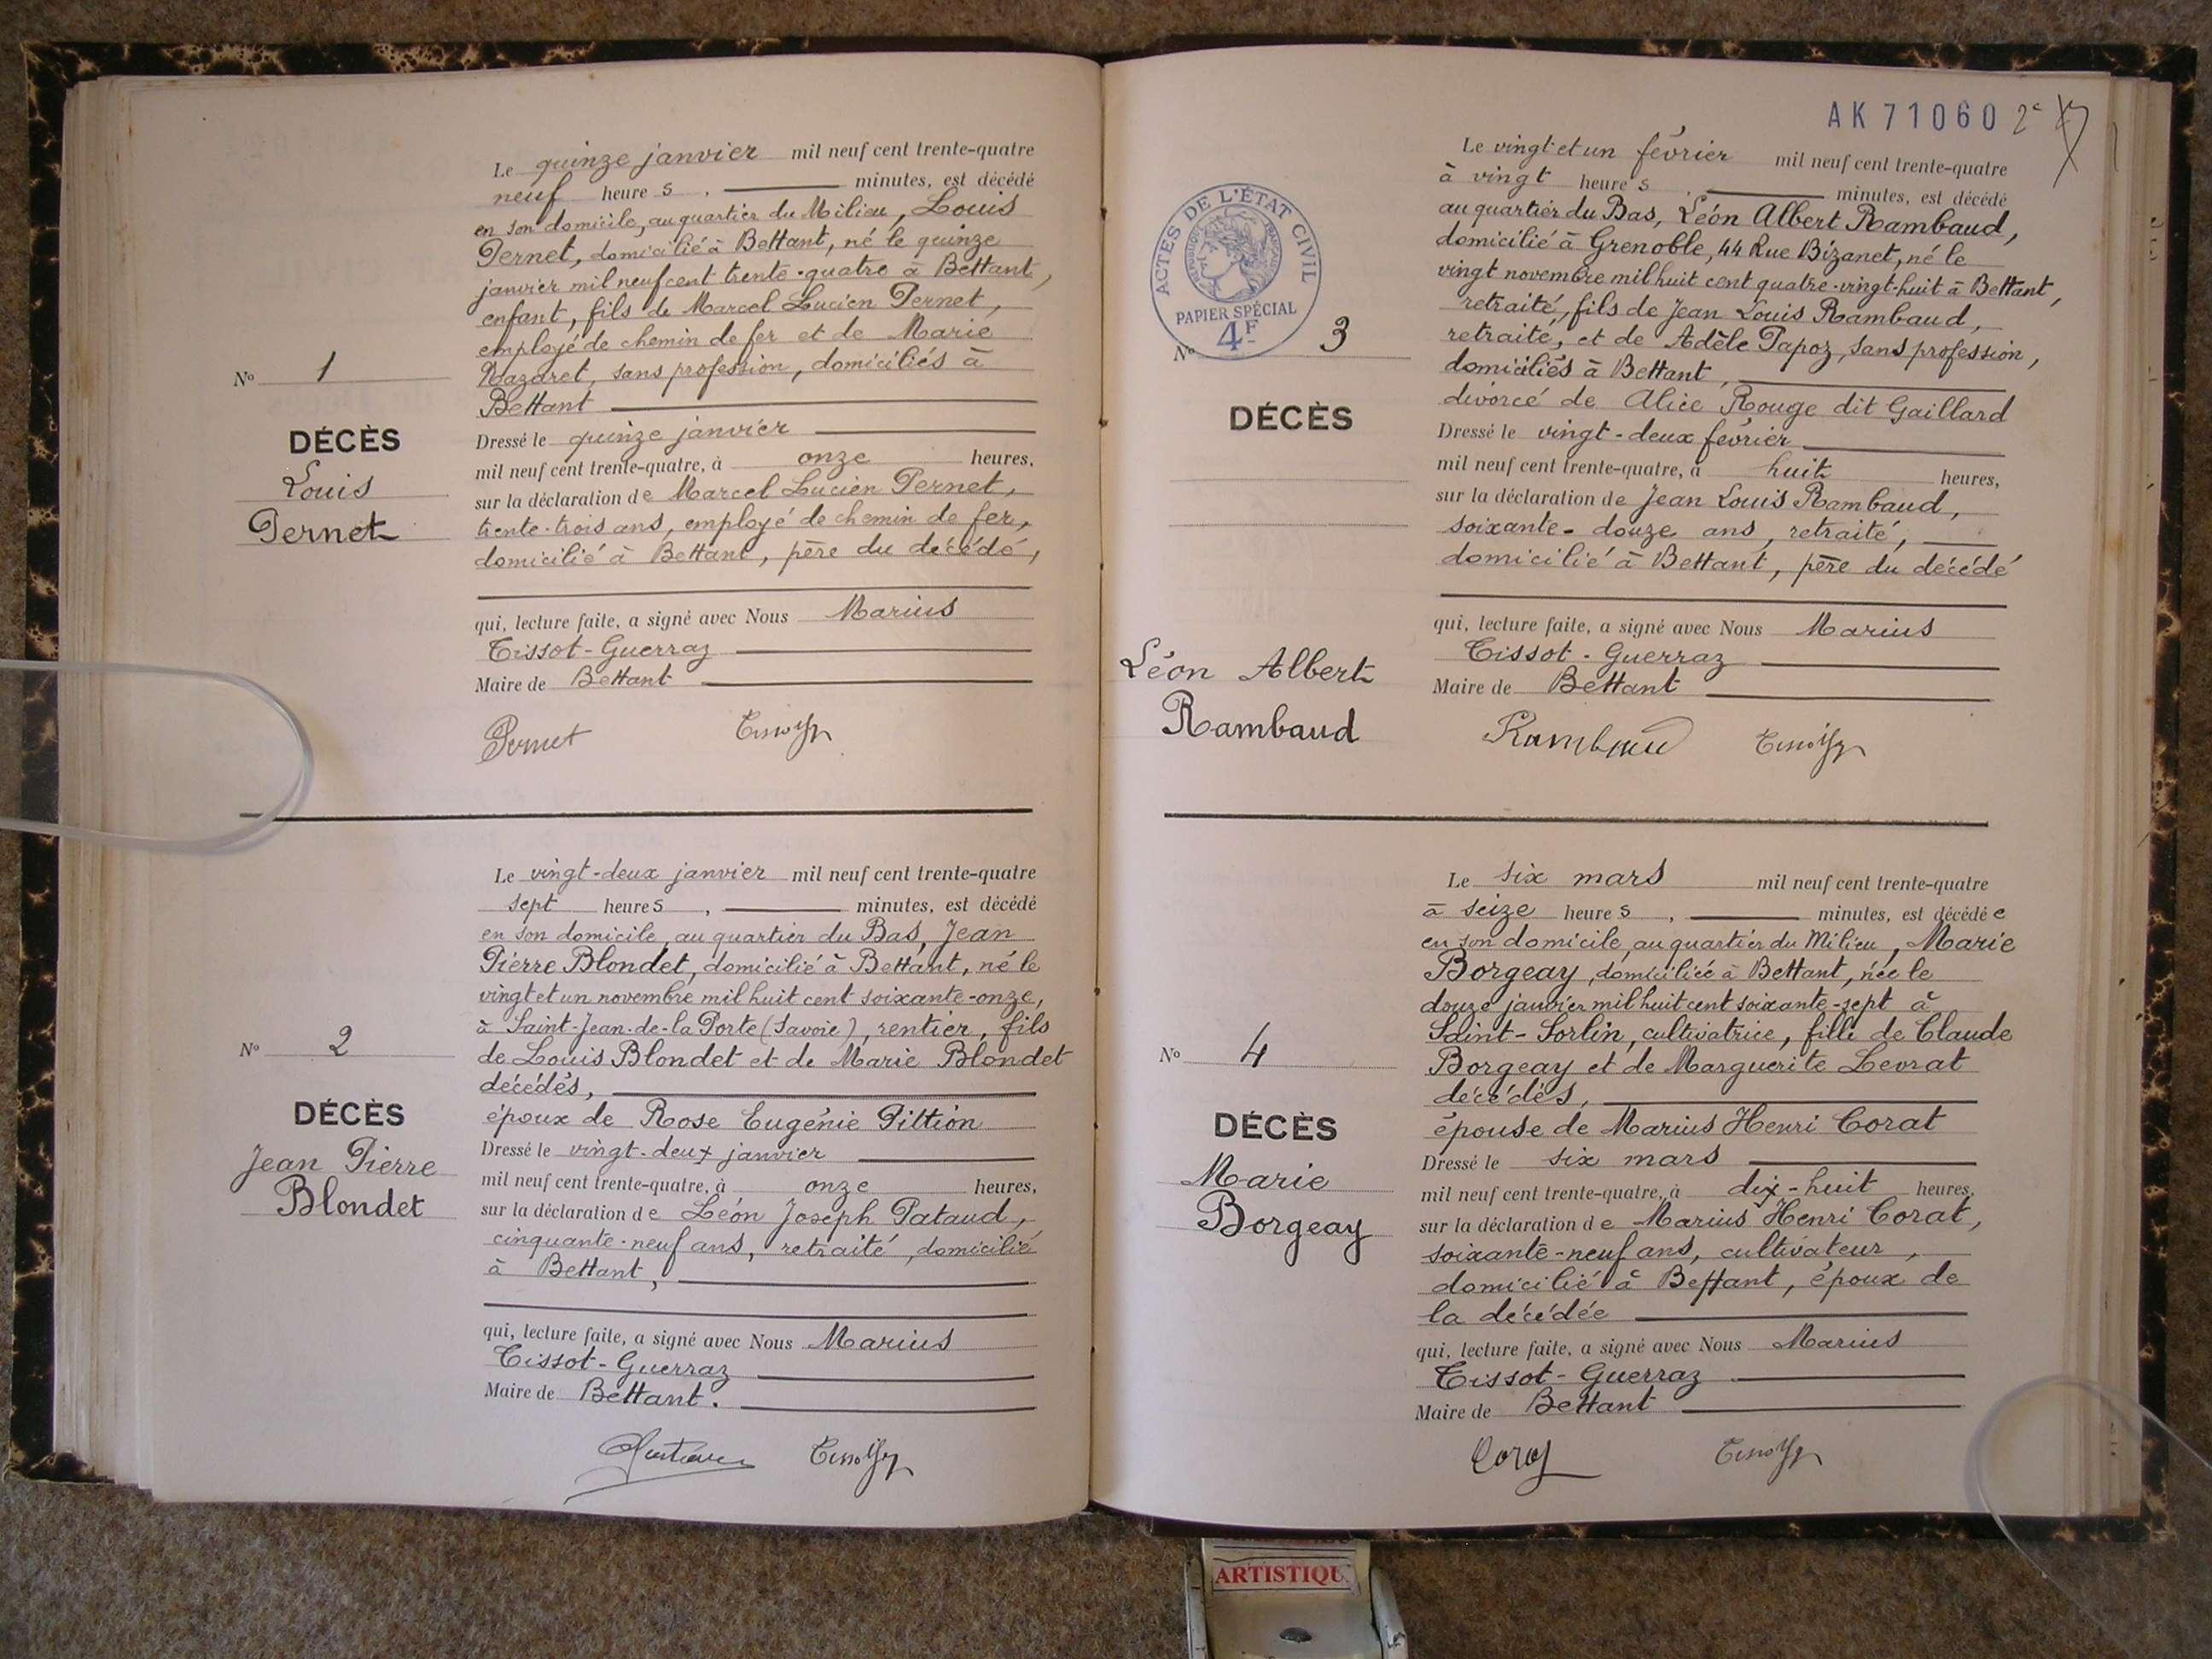 Le quinze janvier mil neuf cent trente-quatre
neuf heures, minutes, est décédé
en son domicile, au quartier du Milieu, Louis
Pernet, domicilié à Bettant, né le quinze
janvier mil neuf cent trente-quatre à Bettant,
enfant, fils de Marcel Lucien Pernet,
employé de chemin de fer et de Marie
Nazaret, sans profession, domiciliés à
Bettant
Nº 1
DÉCÈS
Louis
Pernet
Dressé le quinze janvier
mil neuf cent trente-quatre, à onze heures,
sur la déclaration de Marcel Lucien Pernet,
trente-trois ans, employé de chemin de fer,
domicilié à Bettant, père du décédé,
qui, lecture faite, a signé avec Nous Marius
Tissot-Guerraz
Maire de Bettant
Pernet
Le vingt-deux janvier mil neuf cent trente-quatre
sept heures, minutes, est décédé
en son domicile, au quartier du Bas, Jean
Pierre Blondet, domicilié à Bettant, né le
vingt et un novembre mil huit cent soixante-onze,
à Saint-Jean-de-la Porte (Savoie), rentier, fils
de Louis Blondet et de Marie Blondet
décédés,
époux de Rose Eugénie Pittion
Nº 2
DÉCÈS
Jean Pierre
Blondet
Dressé le vingt-deux janvier
mil neuf cent trente-quatre, à onze heures,
sur la déclaration de Léon Joseph Pataud,
cinquante-neuf ans, retraité, domicilié
à Bettant,
qui, lecture faite, a signé avec Nous Marius
Tissot-Guerraz
Maire de Bettant.
AK 71060 2e
ACTES DE L'ÉTAT CIVIL
RÉPUBLIQUE FRANÇAISE
PAPIER SPÉCIAL
4F
Le vingt et un février mil neuf cent trente-quatre
à vingt heures, minutes, est décédé
au quartier du Bas, Léon Albert Rambaud,
domicilié à Grenoble, 44 Rue Bizanet, né le
vingt novembre mil huit cent quatre-vingt-huit à Bettant,
retraité, fils de Jean Louis Rambaud,
retraité, et de Adèle Papoz, sans profession,
domiciliés à Bettant,
divorcé de Alice Rouge dit Gaillard
Nº 3
DÉCÈS
Léon Albert
Rambaud
Dressé le vingt-deux février
mil neuf cent trente-quatre, à huit heures,
sur la déclaration de Jean Louis Rambaud,
soixante-douze ans, retraité,
domicilié à Bettant, père du décédé
qui, lecture faite, a signé avec Nous Marius
Tissot-Guerraz
Maire de Bettant
Rambaud
Le six mars mil neuf cent trente-quatre
à seize heures, minutes, est décédée
en son domicile, au quartier du Milieu, Marie
Borgeay, domiciliée à Bettant, née le
douze janvier mil huit cent soixante-sept à
Saint-Sorlin, cultivatrice, fille de Claude
Borgeay et de Marguerite Levrat
décédés,
épouse de Marius Henri Corat
Nº 4
DÉCÈS
Marie
Borgeay
Dressé le six mars
mil neuf cent trente-quatre, à dix-huit heures,
sur la déclaration de Marius Henri Corat,
soixante-neuf ans, cultivateur,
domicilié à Bettant, époux de
la décédée
qui, lecture faite, a signé avec Nous Marius
Tissot-Guerraz
Maire de Bettant
ARTISTIQU